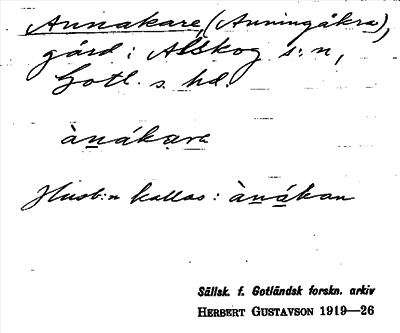 Annakare, (Anningåkra),
gård i Alskog s:n,
Gotl. s. hd.
ànákara
Husb:n kallas: ànákan
Sällsk. f. Gotländsk forskn. arkiv
HERBERT GUSTAVSON 1919—26